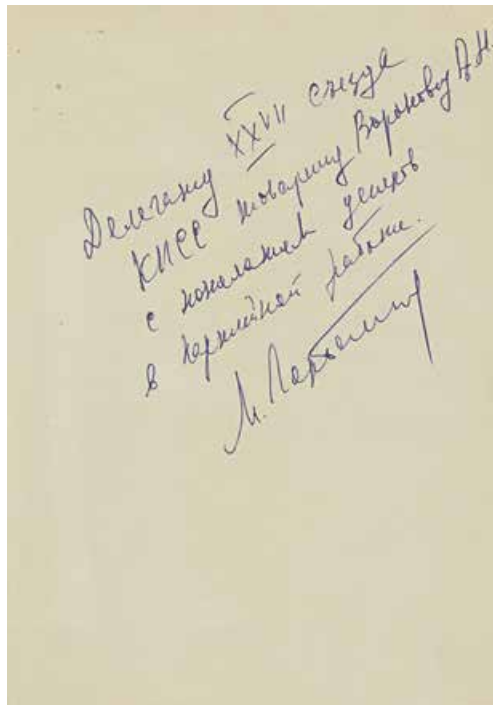 Делегату XXVII съезда
КПСС товарищу Воронову А.Н.
с пожеланием успехов
в партийной работе.
М.